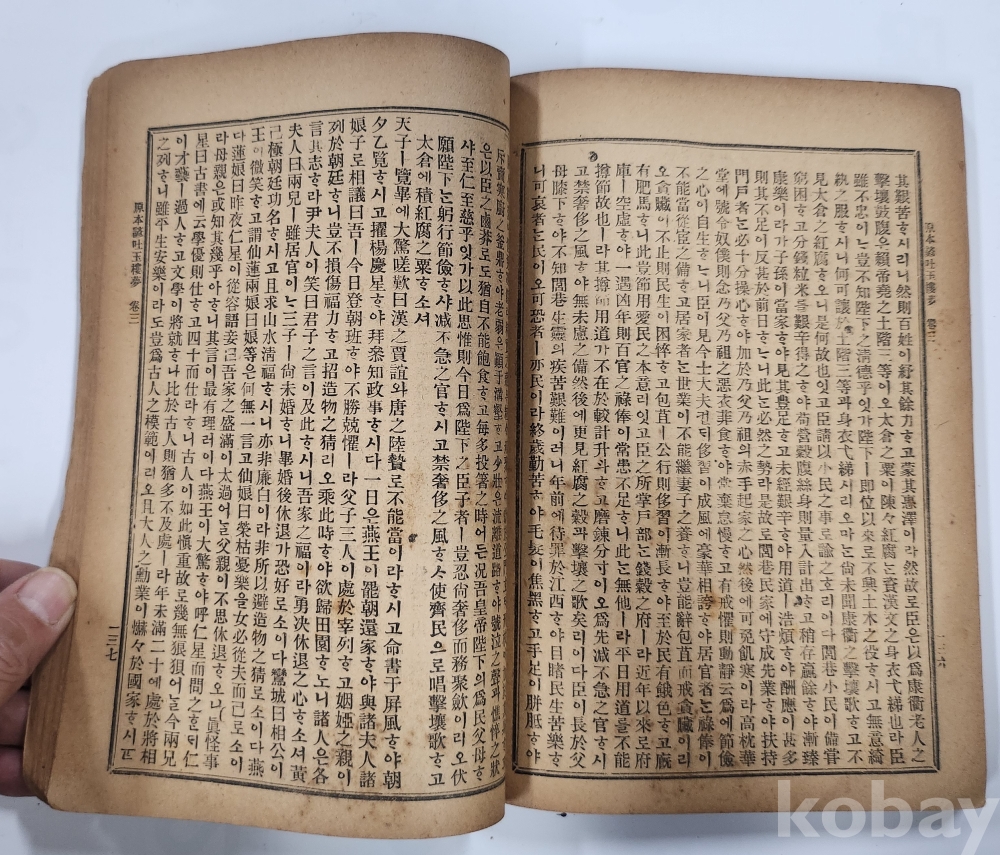 其艱苦ᄒᆞ시리니然則百姓이紓其餘力ᄒᆞ고蒙其惠澤이라然故로臣은以爲康衢老人之
擊壤鼓腹은賴帝堯之土階三等이오太倉之粟이陳々紅腐는資漢文之身衣弋綈也라臣
雖不忠이나는陛下之淸德乎잇가陛下ㅣ卽位以來로不興土木之役ᄒᆞ시고無意綺
紈之服ᄒᆞ시니何可讓於土階三等과身衣弋綈시리오마는尙未聞康衢之擊壤歌ᄒᆞ고不
見太倉之紅腐ᄒᆞ오니是는何故也잇고臣請以小民之事로諭之ᄒᆞ리다閭巷小民이備嘗
窮困ᄒᆞ고分錢粒米를艱辛得之ᄒᆞ야苟營穀腹絲身則量入計出ᄒᆞ고稍存贏餘ᄒᆞ야漸臻
康樂이라가子孫이當家ᄒᆞ야見其豊足ᄒᆞ고未經艱辛ᄒᆞ야用道ㅣ浩煩ᄒᆞ야酬應이甚多
則其不足이反甚於前日ᄒᆞᄂᆞ니此는必然之勢라是故로閭巷民家에守成先業ᄒᆞ야扶持
門戶者는必十分操心ᄒᆞ야加於乃父乃祖의赤手起家之心然後에可免飢寒이라高枕華
堂에號令奴僕則念乃父乃祖之惡衣菲食ᄒᆞ야怠慢之心이忽然自戒ᄒᆞ고有戒懼則動靜云爲에節儉
之心이自生ᄒᆞᄂᆞ니臣이見今士大夫컨ᄃᆡ侈習이成風에豪華相誇ᄒᆞ야居官者는祿俸이
不能當從宦之備ᄒᆞ고居家者는世業이不能繼妻子之養ᄒᆞ니豈能辭苞苴而戒貪贓이리
오貪贓이不止則民生이困悴ᄒᆞ고苞苴ㅣ公行則侈習이漸長ᄒᆞ야至於民有餓色ᄒᆞ고廐
有肥馬ᄒᆞ니此豈節用愛民之本意리잇고臣之所掌戶部는錢穀之府ㅣ라近年以來로府
庫ㅣ空虛ᄒᆞ야一遇凶年則百官之祿俸이常患不足ᄒᆞ니此는無他ㅣ라平日用道를不能
撙節故也ㅣ라其撙節用道가不在於較計升合ᄒᆞ고磨鍊分寸이오爲先减不急之官ᄒᆞ시
고禁奢侈之風ᄒᆞ야無未慮之備然後에更見紅腐之穀과擊壤之歌矣리다臣이長於父
母膝下ᄒᆞ야不知閭巷生靈의疾苦艱難이러니年前에待罪於江西ᄒᆞ야目睹民生苦樂ᄒᆞ
니可哀者는民이오可恐者ㅣ亦民이라終歲勤苦ᄒᆞ야毛髮이焦黑ᄒᆞ고手足이胼胝ᄒᆞ야
原本諺吐玉樓夢 卷三
三六
斥賣寒廚之釜鼎ᄒᆞ야老弱은顚于溝壑ᄒᆞ고少壯은流離道路ᄒᆞ야號泣之聲과憔悴之狀
은以臣之鹵莽로도猶自不能飽食ᄒᆞ고每多投箸之時어든况吾皇帝陛下의爲民父母ᄒᆞ
샤至仁至慈乎잇가以此思惟則今日爲陛下之臣子者ㅣ豈忍尙奢侈而務聚歛이리오伏
願陛下는躬行節儉ᄒᆞ샤减不急之官ᄒᆞ시고禁奢侈之風ᄒᆞ사使齊民으로唱擊壤歌ᄒᆞ고
太倉에積紅腐之粟ᄒᆞ소셔
天子ㅣ覽畢에大驚嗟歎曰漢之賈誼와唐之陸贄로不能當이라ᄒᆞ시고命書于屛風ᄒᆞ야朝
夕乙覽ᄒᆞ시고擢楊慶星ᄒᆞ야拜叅知政事ᄒᆞ시다一日은燕王이罷朝還家ᄒᆞ야與諸夫人諸
娘子로相議曰吾ㅣ今日登朝班ᄒᆞ야不勝兢懼ㅣ라父子三人이處於宰列ᄒᆞ고姻婭之親이
列於朝廷ᄒᆞ니豈不損傷福力ᄒᆞ고招造物之猜리오乘此時ᄒᆞ야欲歸田園ᄒᆞ노니諸人은各
言其志ᄒᆞ라尹夫人이笑曰君子之言이及此ᄒᆞ시니吾家之福이라勇决休退之心ᄒᆞ소셔黃
夫人曰兩兒ㅣ雖居官이나는三子ㅣ尙未婚ᄒᆞ니畢婚後休退가恐好로소이다鸞城曰相公이
已極朝廷功名ᄒᆞ시고且求山水淸福ᄒᆞ시니亦非廉白이라非所以避造物之猜로소이다燕
王이微笑ᄒᆞ고謂仙蓮兩娘曰娘等은何無一言고仙娘曰榮枯憂樂을女必從夫而已로소이
다蓮娘曰昨夜仁星이從容語妾曰吾家之盛滿이太過어늘父親이不思休退ᄒᆞ시니
라母親은或知其幾乎아ᄒᆞ니其言이最有理러이다燕王이大驚ᄒᆞ야呼仁星而問之ᄒᆞᆫᄃᆡ仁
星曰古書에云學優則仕ᄒᆞ고四十而仕라ᄒᆞ니古人이如此愼重故로幾無狼狽어ᄂᆞᆯ今兩兄
이才藝ㅣ過人ᄒᆞ고文學이將就ᄒᆞ나比於古人則猶多不及處ㅣ라年未滿二十에處於將相
之列ᄒᆞ니雖平生安樂이라도豈爲古人之模範이리오且大人之勳業이爀々於國家ᄒᆞ시고
原本諺吐玉樓夢 卷三
三七
kobay